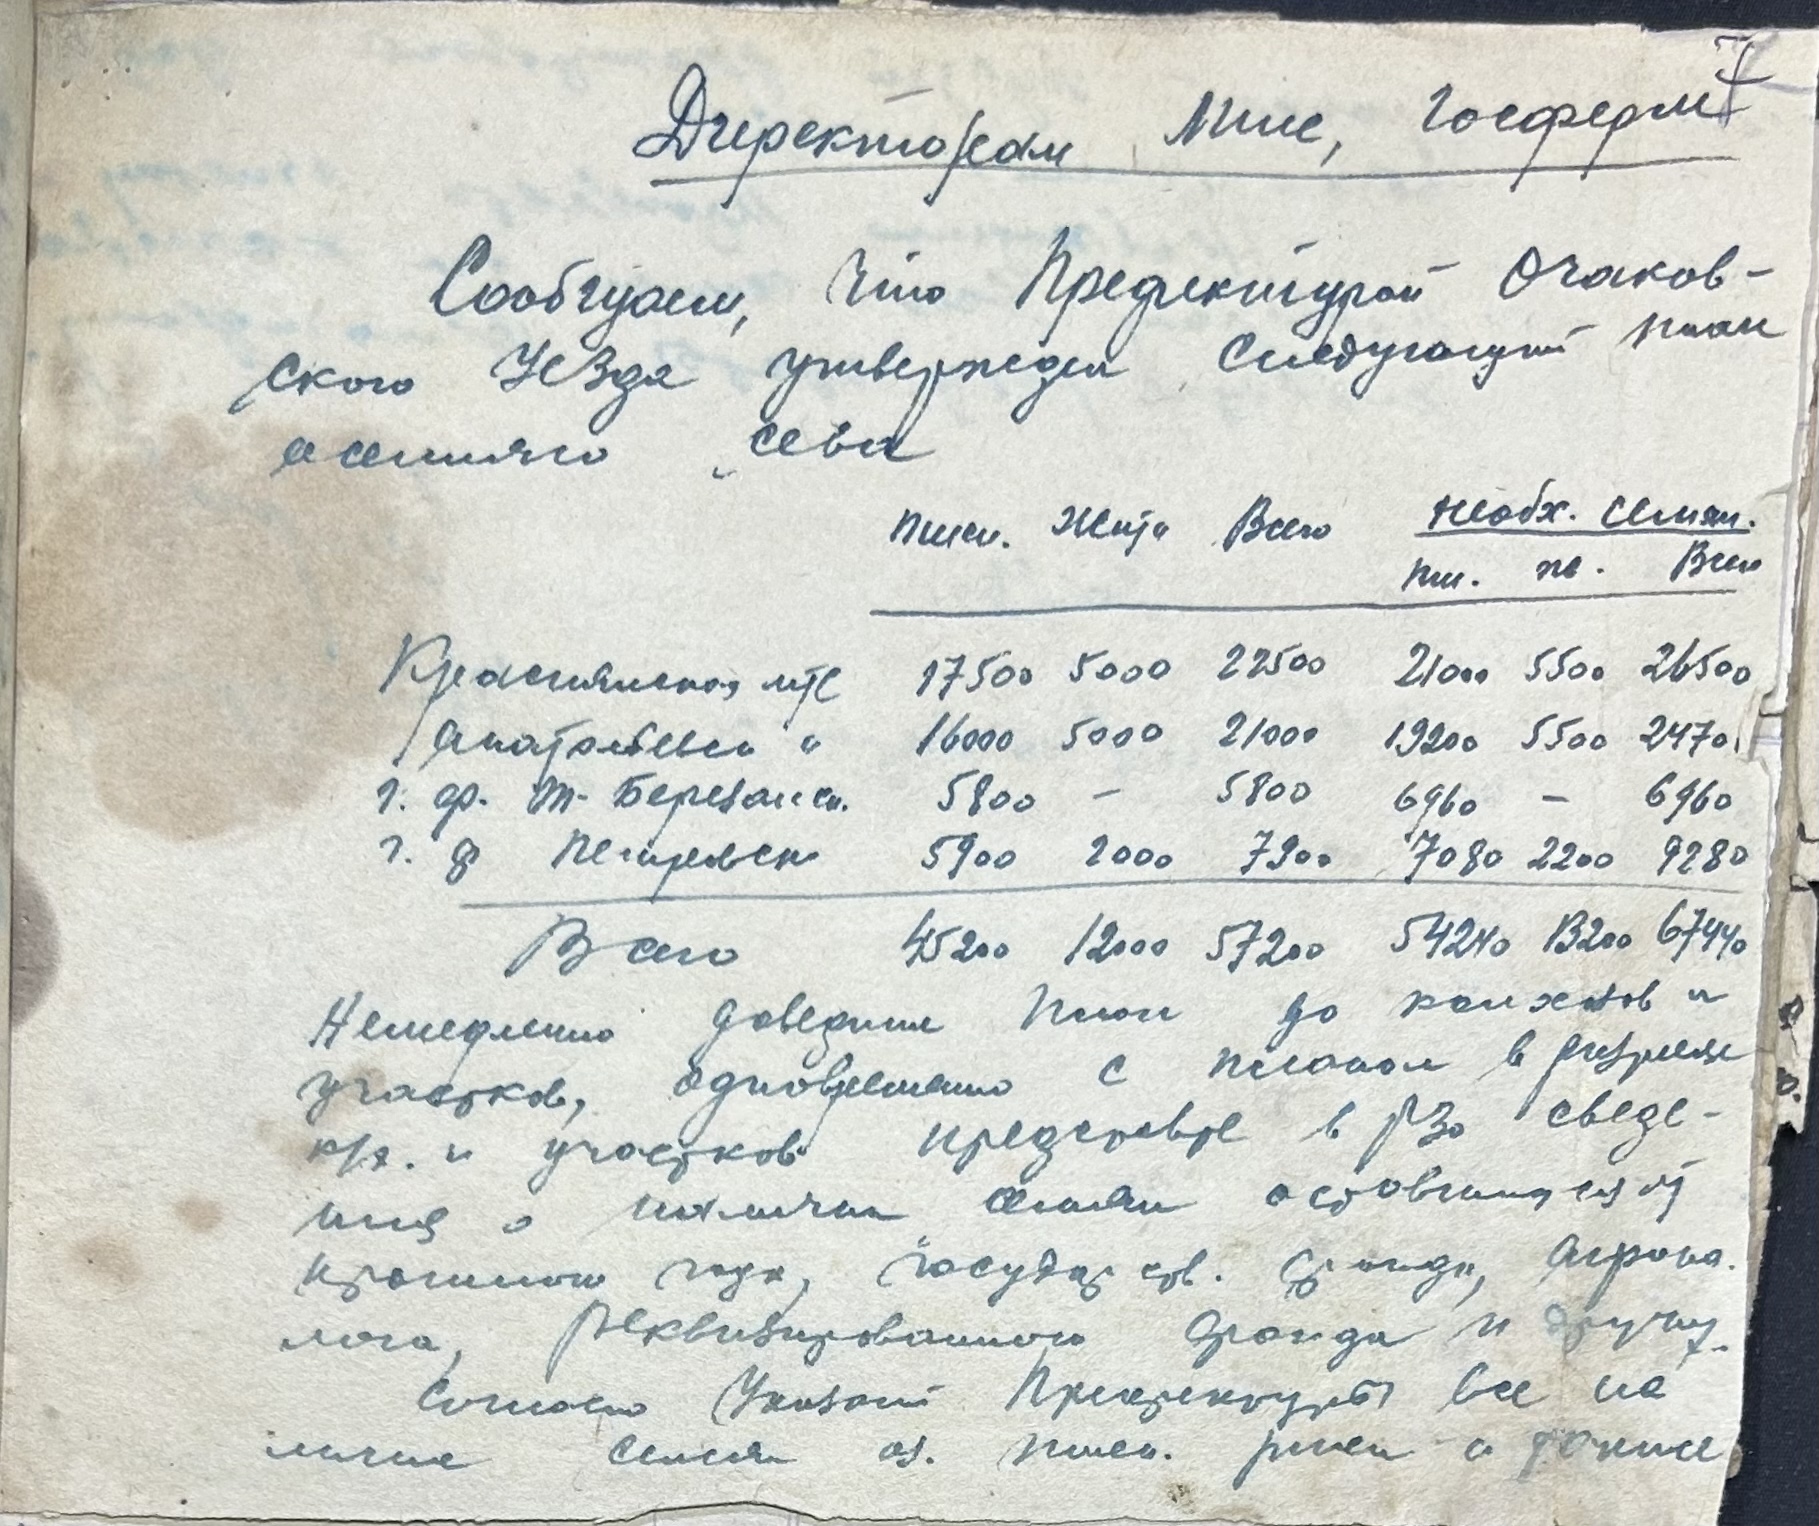 Директорам МТС, Госферм
Сообщаем, что Префектурой Очаков-
ского Уезда утвержден следующий план
осеннего сева
пшен. Жита Всего необх. семян.
пш. ж. Всего
Краснянская мтс 17500 5000 22500 21000 5500 26500
Анатольевск " 16000 5000 21000 19200 5500 2470
г. ф. Т-Березанск. 5800 - 5800 6960 - 6960
г. ф Петровск 5900 2000 7900 7080 2200 9280
Всего 45200 12000 57200 54240 13200 67440
Немедленно доведите план до колхозов и
участков, одновременно с планом в разрезе
к/х. и участков представте в РЗО сведе-
ния о наличии семян оставшихся от
прошлого года, государств. фонда,
реквизированного фонда и
Согласно Указаний Префектуры все на
личие семян оз. пшен. ржи а также